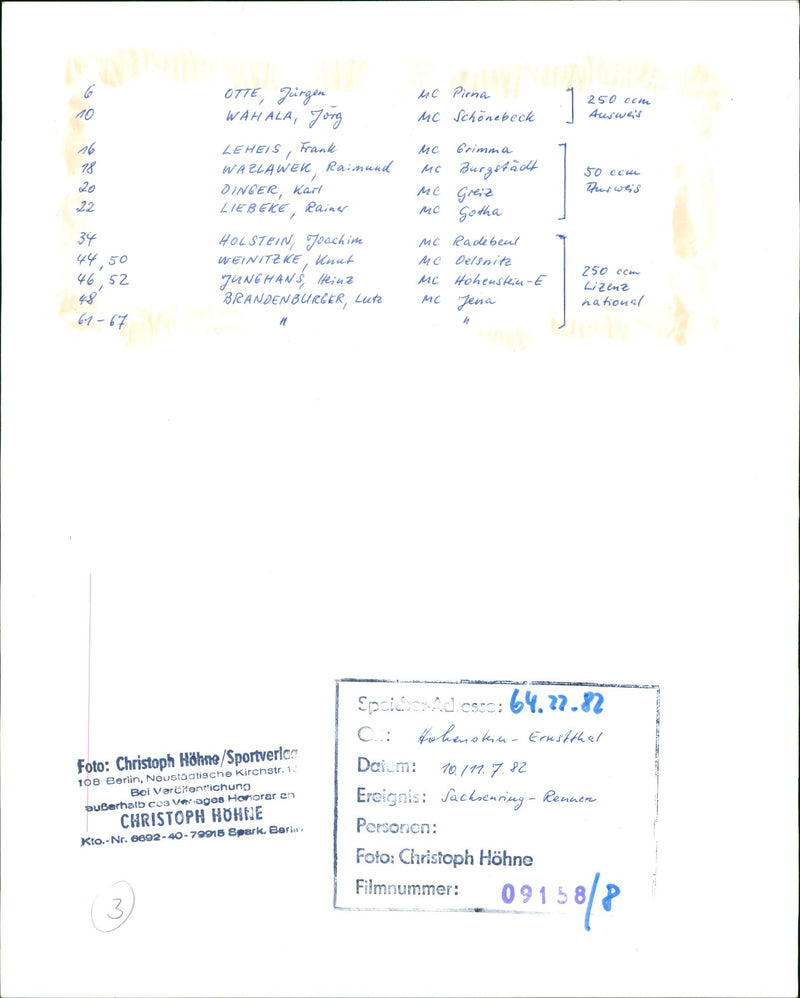 6 OTTE, Jürgen MC Pirna 250 ccm
10 WAHALA, Jörg MC Schönebeck Ausweis
16 LEHEIS, Frank MC Grimma
18 WAZLAWEK, Raimund MC Burgstädt 50 ccm
20 DINGER, Karl MC Greiz Ausweis
22 LIEBEKE, Rainer MC Gotha
34 HOLSTEIN, Joachim MC Radebeul
44, 50 WEINITZKE, Knut MC Oelsnitz 250 ccm
46, 52 JUNGHANS, Heinz MC Hohenstein-E Lizenz
48 BRANDENBURGER, Lutz MC Jena national
61-67 " "
Foto: Christoph Höhne/Sportverlag
108 Berlin, Neustädtische Kirchstr.
Bei Veröffentlichung
außerhalb des Verlages Honorar an
CHRISTOPH HÖHNE
Kto.-Nr. 6692-40-79915 Spark. Berlin
3
Speicher-Adresse: 64.22.82
Ort: Hohenstein-Ernstthal
Datum: 10./11.7.82
Ereignis: Sachsenring-Rennen
Personen:
Foto: Christoph Höhne
Filmnummer: 09158/8